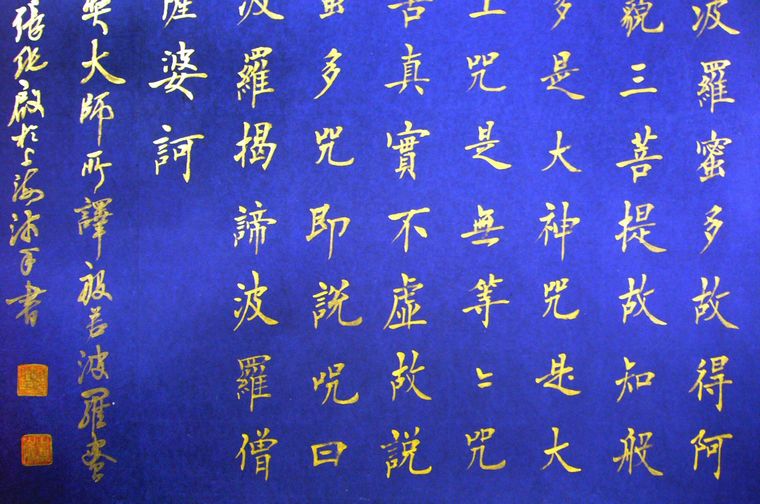 波羅蜜多故得阿
藐三菩提故知般
多是大神咒是大
上咒是無等〻咒
苦真實不虛故說
蜜多咒即說咒曰
波羅揭諦波羅僧
薩婆訶
奘大師所譯般若波羅蜜
張 啟於上海 書